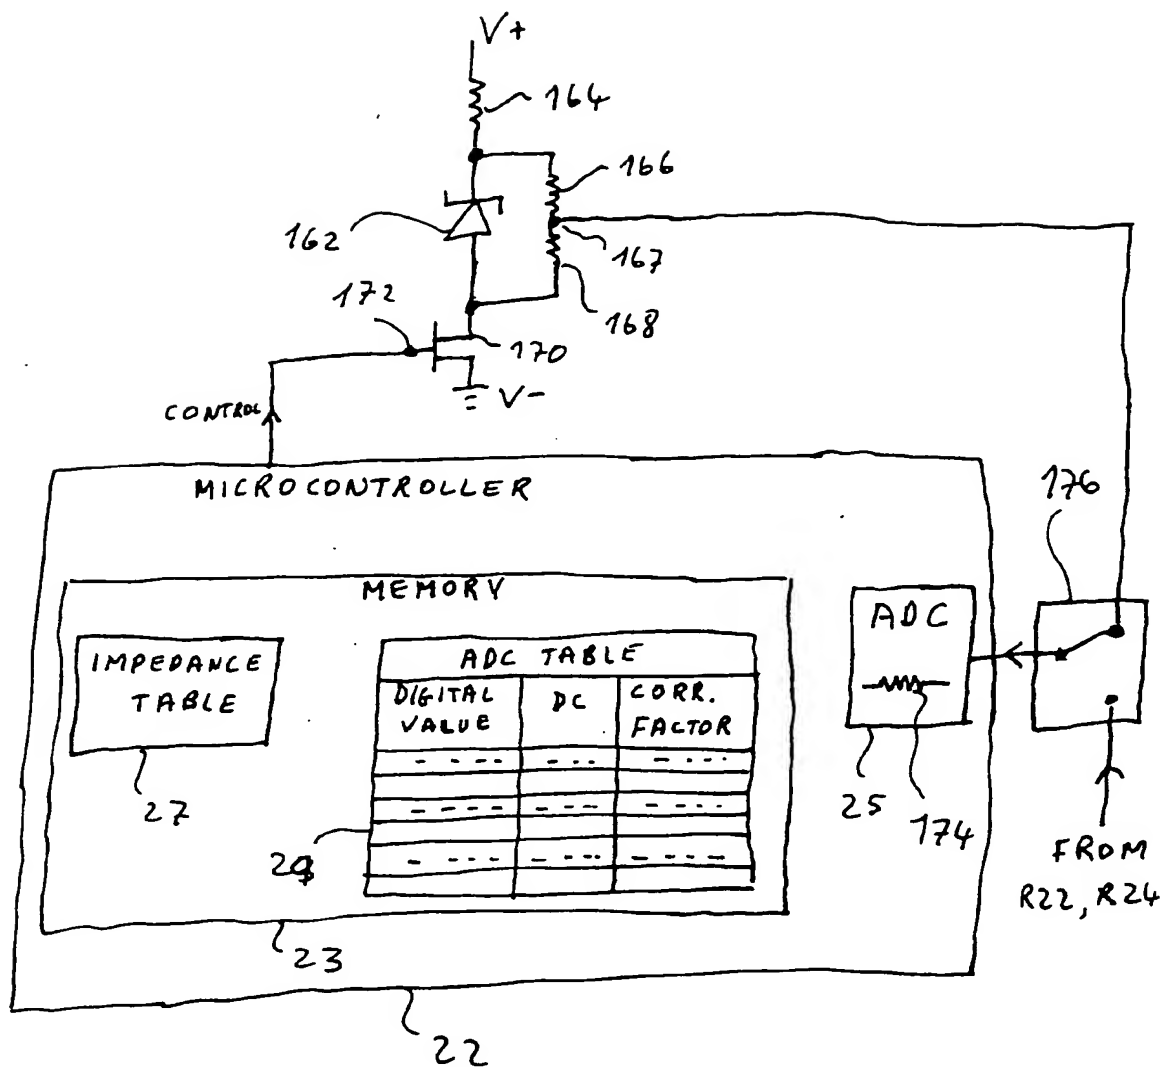 V+
164
166
162
167
172
168
170
V-
CONTROL
MICROCONTROLLER
176
MEMORY
ADC
IMPEDANCE
TABLE
ADC TABLE
DIGITAL
VALUE
DC
CORR.
FACTOR
27
25
174
FROM
R22, R24
23
22